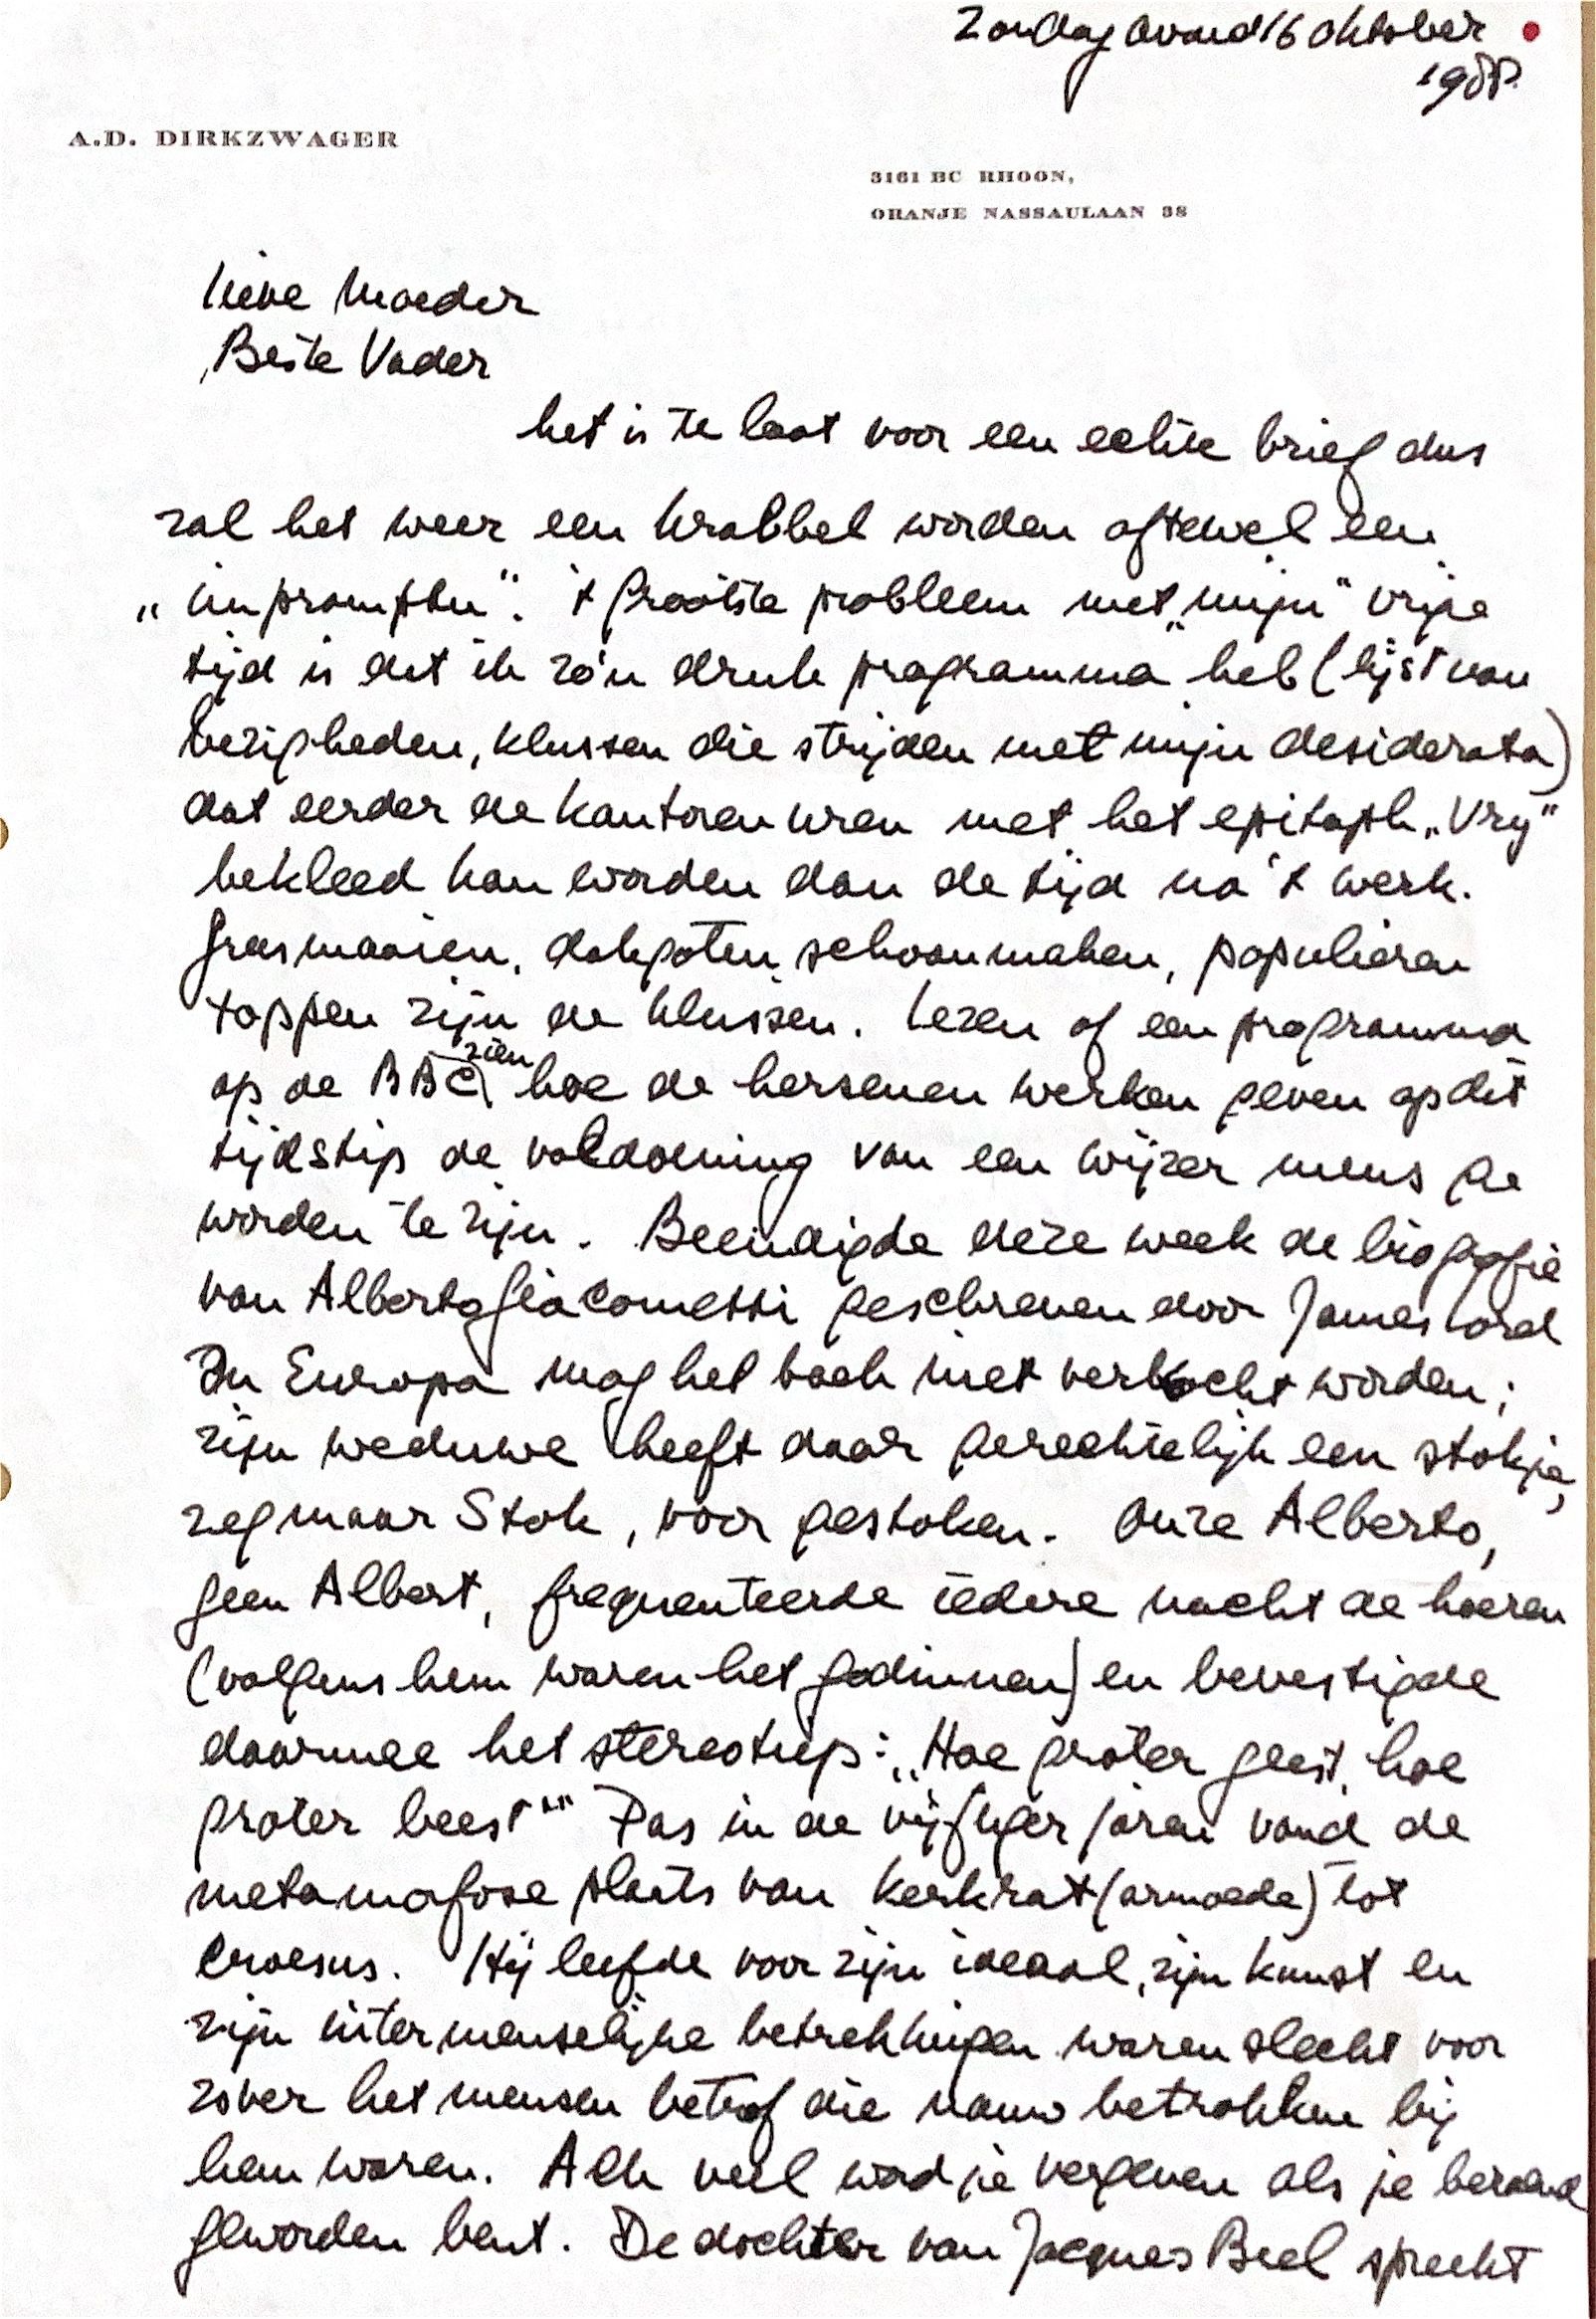 Zondag avond 16 oktober
1988.
A.D. DIRKZWAGER
3161 BC RHOON,
ORANJE NASSAULAAN 38
Lieve Moeder
Beste Vader
het is te laat voor een echte brief dus
zal het weer een krabbel worden oftewel een
„impromptu”. 't Grootste probleem met „mijn” vrije
tijd is dat ik zo'n druk programma heb (lijst van
bezigheden, klussen die strijden met mijn desiderata)
dat eerder de kantoren uren met het epitaph „Vrij”
bekleed kan worden dan de tijd na 't werk.
Grasmaaien, dakgoten schoonmaken, populieren
toppen zijn de klussen. Lezen of een programma
op de BBC zien hoe de hersenen werken geven op dit
tijdstip de voldoening van een wijzer mens ge
worden te zijn. Beeindigde deze week de biografie
van Alberto Giacometti geschreven door James Lord
In Europa mag het boek niet verkocht worden;
zijn weduwe heeft daar gerechtelijk een stokje,
zeg maar Stok, voor gestoken. Onze Alberto,
geen Albert, frequenteerde iedere nacht de hoeren
(volgens hem waren het godinnen) en bevestigde
daarmee het stereotiep: „Hoe groter geest, hoe
groter beest”” Pas in de vijftiger jaren vond de
metamofose plaats van kerkrat (armoede) tot
Croesus. Hij leefde voor zijn ideaal, zijn kunst en
zijn intermenselijke betrekkingen waren slecht voor
zover het mensen betrof die nauw betrokken bij
hem waren. Ach veel word je vergeven als je beroemd
geworden bent. De dochter van Jacques Brel spreekt